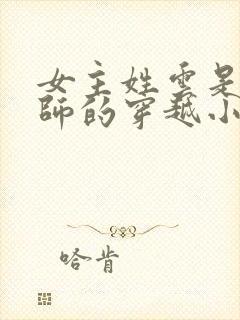 女主姓云是
師的穿越小
哈肯